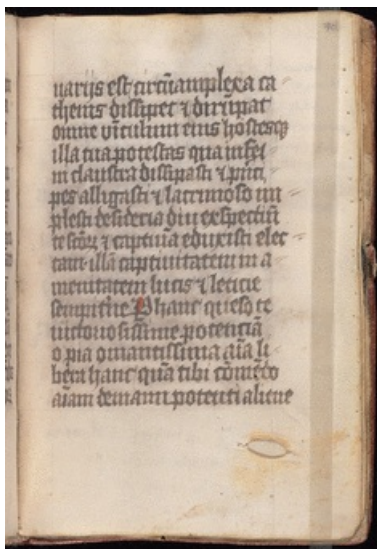 uariis est circūamplexa ca
thenis dissipet ⁊ dirūpat
omne vīculum eius hostesqꝫ
illa tua potestas qua inferi
ni claustra dissipasti ⁊ pnci,
pes alligasti ⁊ lacrimoso im
plesti desideria diu exspectīū
te scōꝝ ⁊ captiuā eduxisti elec
tam illā captiuitatem in a
menitatem lucis ⁊ leticie
sempitne O hanc queso te
uictoriosissime potenciā
o pia ⁊ amantissima aīa li
bera hanc quā tibi cōmēdo
aīam de manu potenti alicne